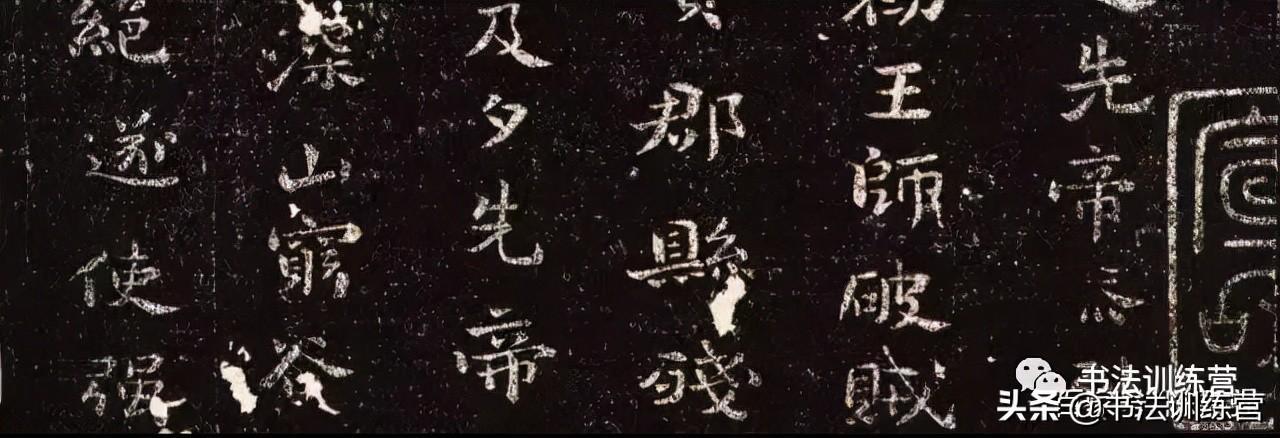 先帝
王師破賊
郡縣殘
及夕先帝
山窮谷
絕遂使强
书法训练营
头条@书法训练营